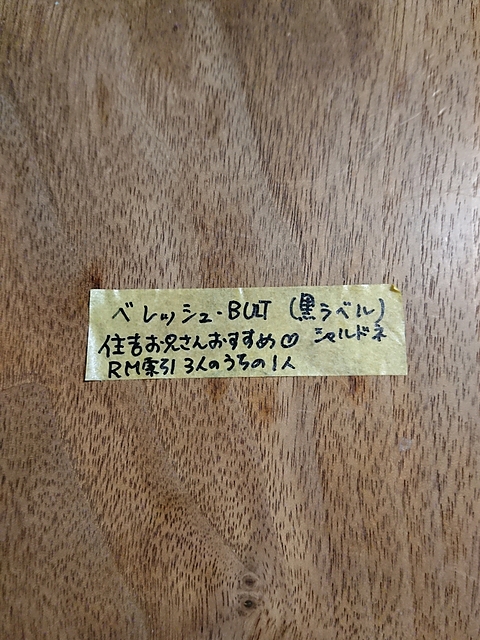 ベレッシュ・BULT (黒ラベル)
住吉お兄さんおすすめ♡ シャルドネ
RM索引 3人のうちの1人